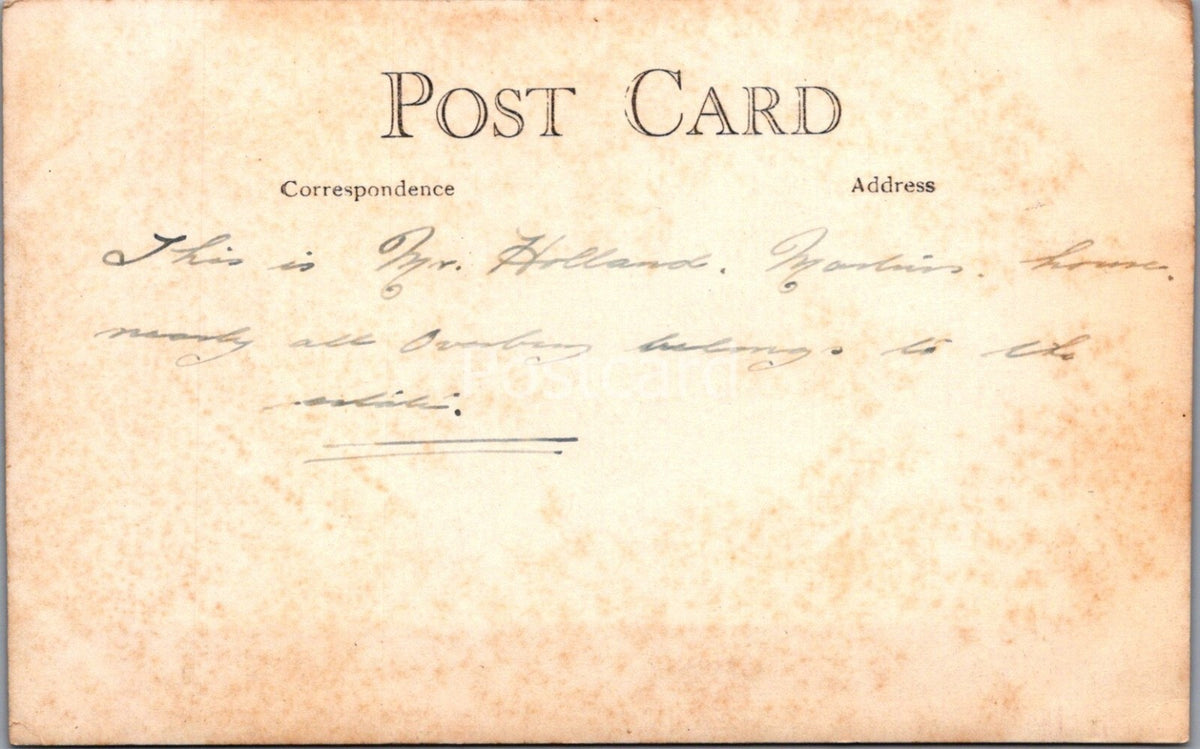 POST CARD
Correspondence Address
This is Mr. Holland. Martins. house.
nearly all Overbury belongs to the
estate.
Postcard